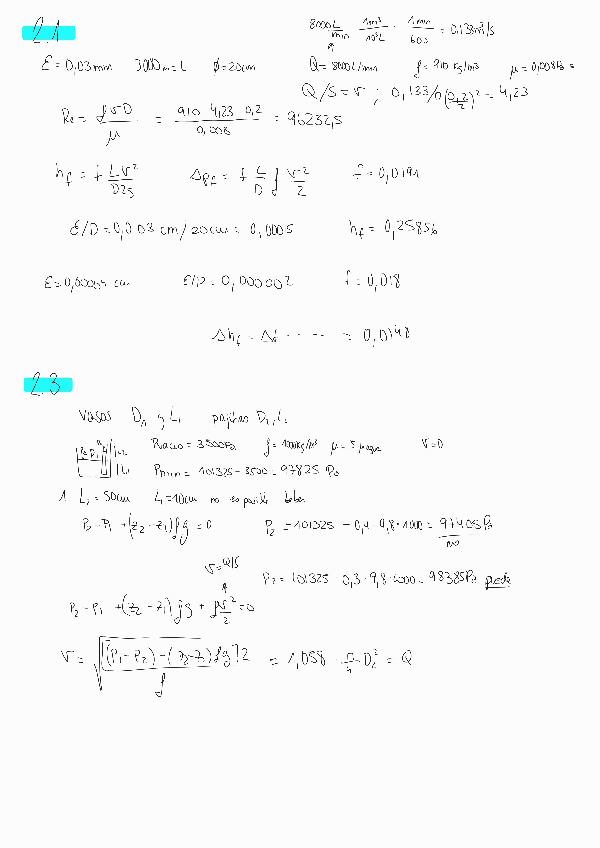 2.1
8000 L/min · 1m³/10³L · 1min/60s = 0,138m³/s
ε = 0,03mm 3000m = L φ = 20cm Q = 8000L/min ρ = 910 kg/m3 μ = 0,008
Q/S = v ; 0,133/π(0,2/2)² = 4,23
Re = ρvD/μ = 910 · 4,23 · 0,2/0,008 = 96232,5
hf = f Lv²/D2g Δpf = f L/D ρ v²/2 f = 0,0191
ε/D = 0,003 cm/20cm = 0,0005 hf = 0,25856
cm ε/D = 0,000002 f = 0,018
Δhf = = 0,0148
2.3
Vasos D1 y L1 pajitas D2, L2
Pvacio = 3500Pa ρ = 1000kg/m3 μ = v = 0
Pmin = 101325 - 3500 = 97825 Pa
1 L2 = 50cm L1 = 10cm no es posible beber
P2 - P1 + (z2 - z1)ρg = 0 P2 = 101325 - 0,4 · 9,8 · 1000 = 97405Pa
no
v = Q/S
P2 = 101325 - 0,3 · 9,8 · 1000 = 98385Pa puede
P2 - P1 + (z2 - z1)ρg + ρv²/2 = 0
v = √([(P1 - P2) - (z2 - z1)ρg]2/ρ) = 1,058 · π/4 · D2² = Q